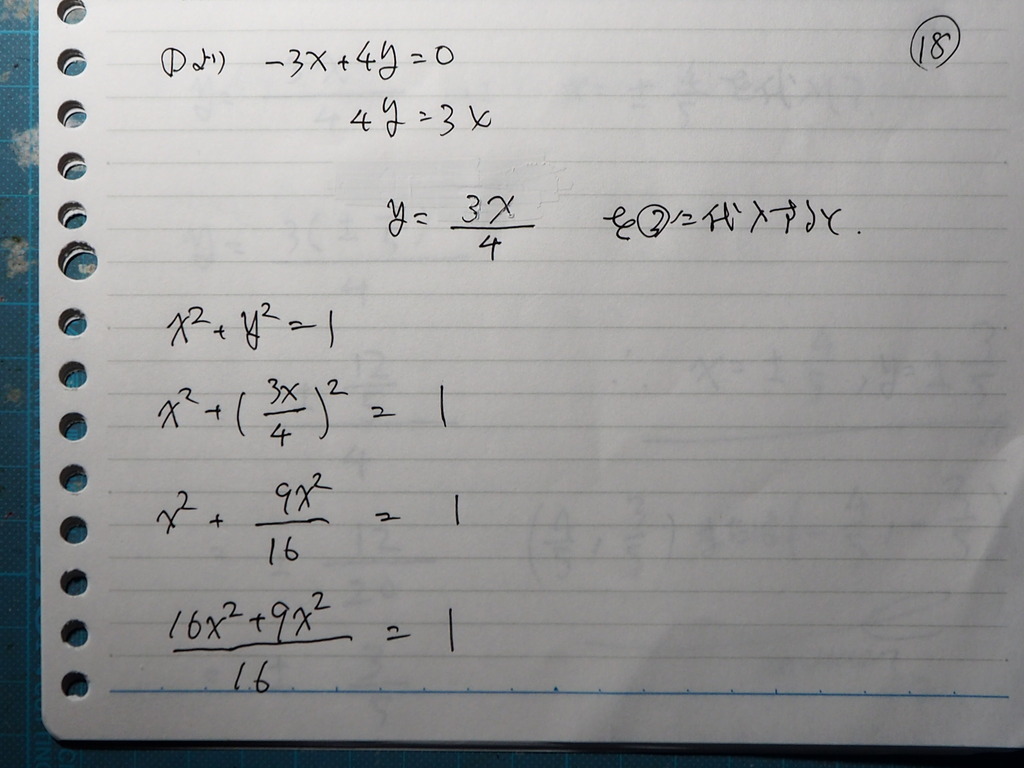 ⑱
①より -3x+4y=0
4y=3x
y=3x/4 を②に代入すれば.
x²+y²=1
x²+(3x/4)²=1
x²+9x²/16=1
(16x²+9x²)/16=1